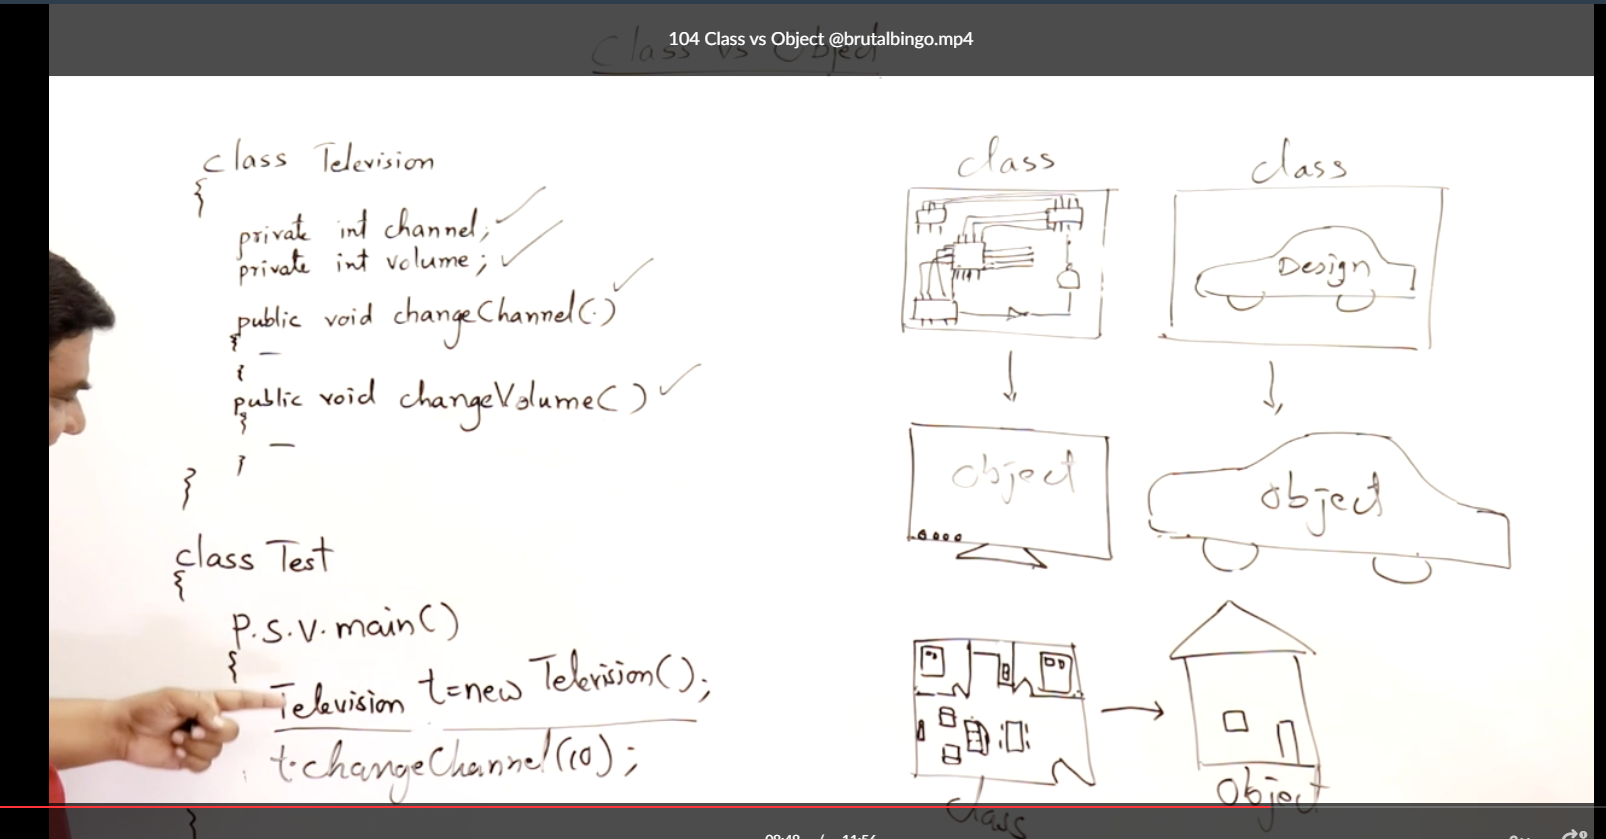 104 Class vs Object @brutalbingo.mp4
Class vs Object
class Television
{
private int channel;
private int volume;
public void changeChannel(·)
{
—
}
public void changeVolume()
{
—
}
}
class Test
{
P.S.V. main()
{
Television t=new Television();
t.changeChannel(10);
}
class
class
Design
object
object
class
object
08:48 / 11:56